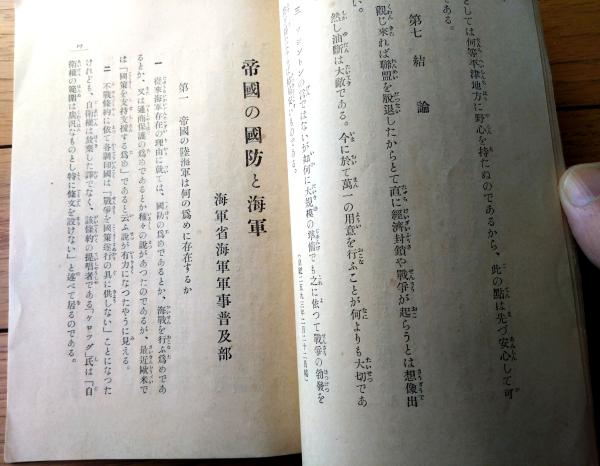 としては何等平津地方に野心を持たぬのであるから、此の點は先づ安心して可
である。
第七 結論
觀じ來れば聯盟を脫退したからとて直に經濟封鎖や戰爭が起らうとは想像出
い。
然し油斷は大敵である。今に於て萬一の用意を行ふことが何よりも大切であ
三 ワシントンの言ではないが如何に大規模の準備でも之に依つて戰爭の勃發を
帝國の國防と海軍
海軍省海軍軍事普及部
第一 帝國の陸海軍は何の爲めに存在するか
一 從來海軍存在の理由に就ては、國防の爲めであるとか、海戰を行ふ爲めであ
るとか、又は通商保護の爲めであるとか種々の說があつたのであるが、最近歐米で
は「國策を支持支援する爲め」であると云ふ說が有力になつたやうに見える。
二 不戰條約に依て各調印國は「戰爭を國策遂行の具に供しない」ことになつた
けれども、自衞權は放棄した譯でなく、該條約の提唱者である「ケロッグ」氏は「自
衞權の範圍は廣汎なものとし特に條文を設けない」と述べて居るのである。